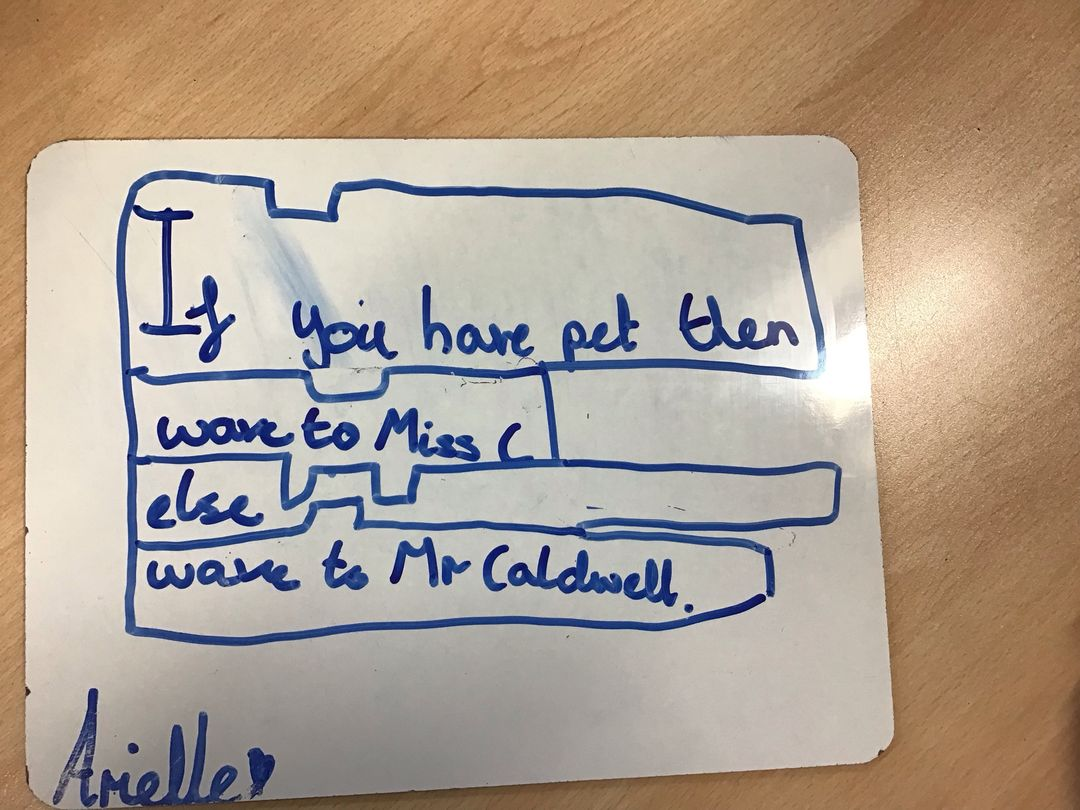 If you have pet then
wave to Miss C
else
wave to Mr Caldwell.
Arielle